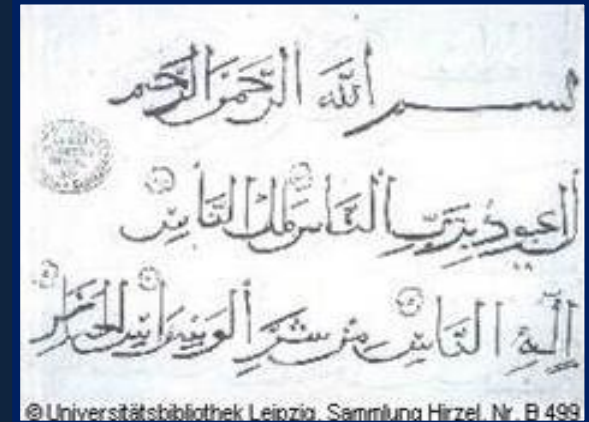 بسم الله الرَّحمن الرَّحيم
ل اعوذ بِرَبِّ النَّاس ملك النَّاسِ
إله النَّاسِ مِن شَرِّ الوسواس الخناس
© Universitätsbibliothek Leipzig, Sammlung Hirzel, Nr. B 499